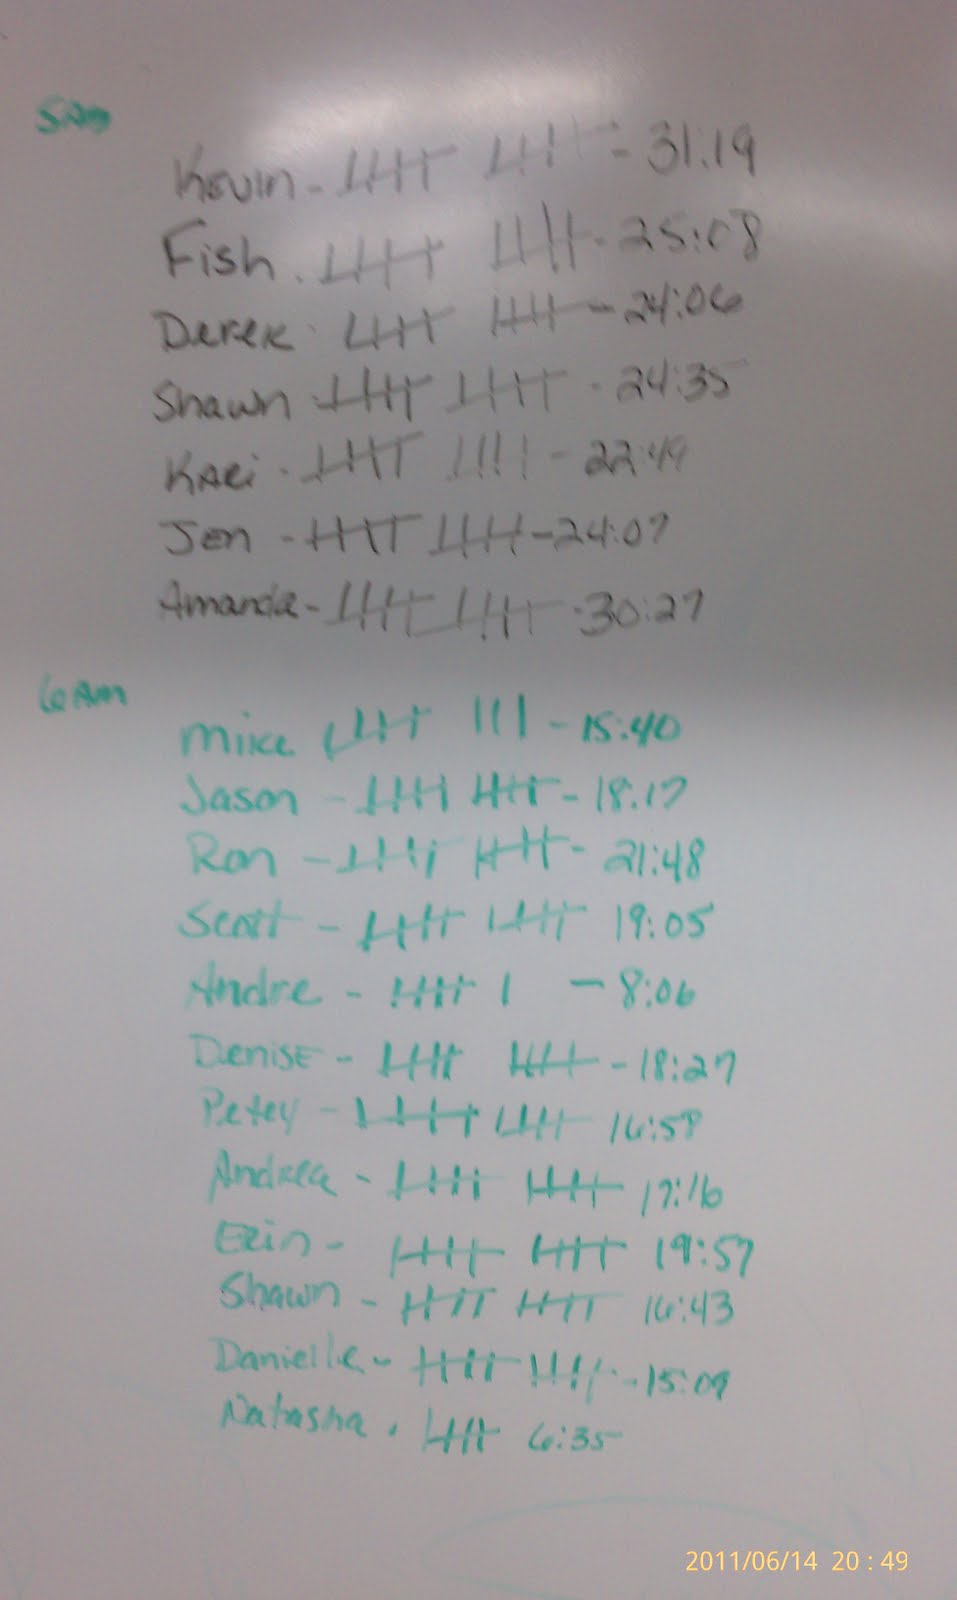 5AM
Kevin - 31:19
Fish - 25:08
Derek - 24:06
Shawn - 24:35
Kari - 22:49
Jen - 24:07
Amanda - 30:27
6AM
Mike - 15:40
Jason - 18:17
Ron - 21:48
Scott - 19:05
Andre - 8:06
Denise - 18:27
Petey - 16:58
Andrea - 17:16
Erin - 19:57
Shawn - 16:43
Danielle - 15:09
Natasha . 6:35
2011/06/14 20:49